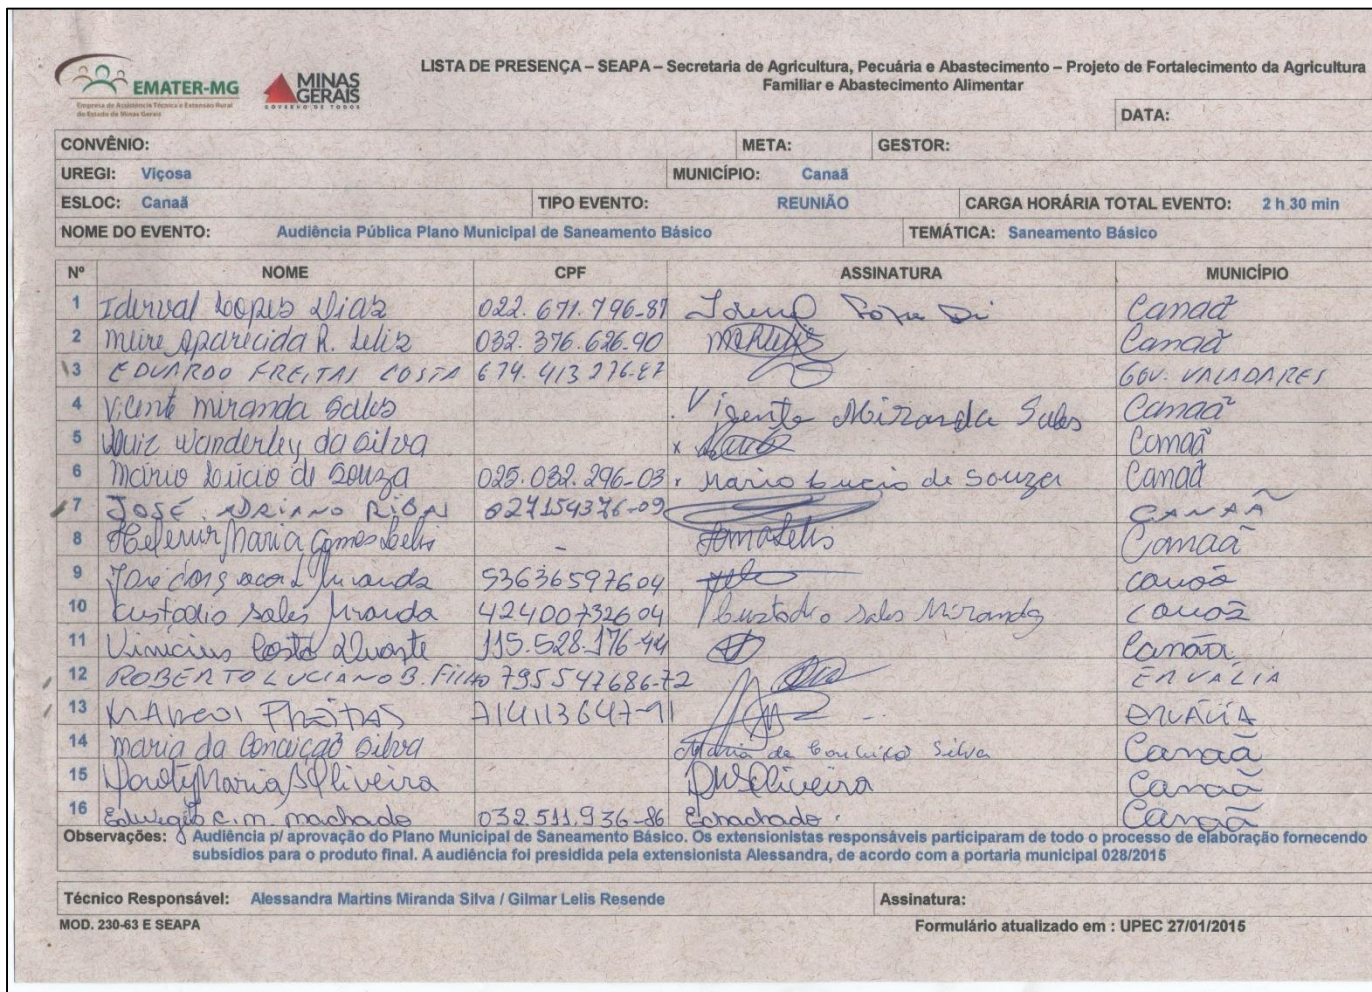 EMATER-MG
Empresa de Assistência Técnica e Extensão Rural
do Estado de Minas Gerais
MINAS
GERAIS
GOVERNO DE TODOS
LISTA DE PRESENÇA – SEAPA – Secretaria de Agricultura, Pecuária e Abastecimento – Projeto de Fortalecimento da Agricultura
Familiar e Abastecimento Alimentar
DATA:
CONVÊNIO: META: GESTOR:
UREGI: Viçosa MUNICÍPIO: Canaã
ESLOC: Canaã TIPO EVENTO: REUNIÃO CARGA HORÁRIA TOTAL EVENTO: 2 h 30 min
NOME DO EVENTO: Audiência Pública Plano Municipal de Saneamento Básico TEMÁTICA: Saneamento Básico
Nº NOME CPF ASSINATURA MUNICÍPIO
1 Iderval Lopes Dias 022.671.796-87 Canaã
2 Meire Aparecida R. Lelis 032.376.626-90 Canaã
3 EDUARDO FREITAS COSTA 674.413 276-87 GOV. VALADARES
4 Vicente Miranda Sales Vicente Miranda Sales Canaã
5 Luiz Wanderley da Silva Canaã
6 Mário Lúcio de Souza 025.032.296-03 Mario Lucio de Souza Canaã
7 JOSÉ ADRIANO 027154376-09 CANAÃ
8 Maria Gomes Lelis - Canaã
9 José Miranda 53636597604 Canaã
10 Custodio Sales Miranda 42400732604 Custodio Sales Miranda Canaã
11 Vinicius Costa Duarte 115.528.176-44 Canaã
12 ROBERTO LUCIANO B. FILHO 795547686-72 ERVÁLIA
13 FREITAS 714113647-91 ERVÁLIA
14 Maria da Conceição Silva Maria da Conceição Silva Canaã
15 Maria Oliveira Canaã
16 Eduvigio C. M. Machado 032.511.936-86 Canaã
Observações: Audiência p/ aprovação do Plano Municipal de Saneamento Básico. Os extensionistas responsáveis participaram de todo o processo de elaboração fornecendo
subsídios para o produto final. A audiência foi presidida pela extensionista Alessandra, de acordo com a portaria municipal 028/2015
Técnico Responsável: Alessandra Martins Miranda Silva / Gilmar Lelis Resende Assinatura:
MOD. 230-63 E SEAPA Formulário atualizado em : UPEC 27/01/2015